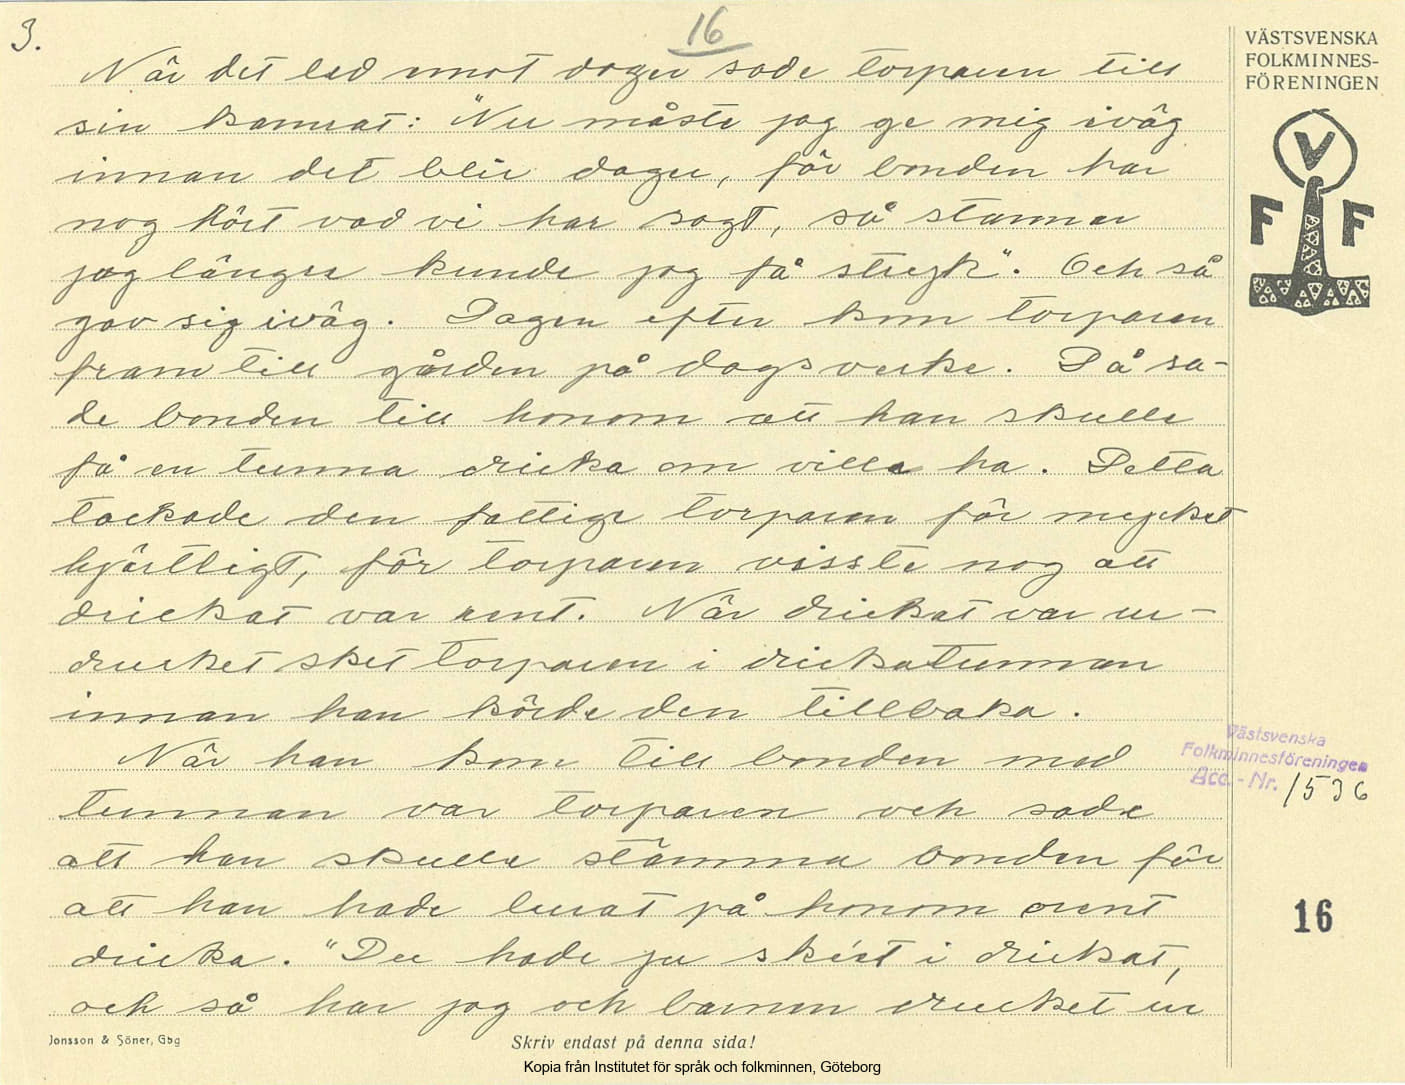 3.
16
När det led mot dager sade torparen till
sin kamrat: "Nu måste jag ge mig iväg
innan det blir dager, för bonden har
nog hört vad vi har sagt, så stannar
jag länger kunde jag få stryk". Och så
gav sig iväg. Dagen efter kom torparen
fram till gården på dagsverke. Då sa-
de bonden till honom att han skulle
få en tunna dricka om ville ha. Detta
tackade den fattige torparen för mycket
hjärtligt, för torparen visste nog att
drickat var rent. När drickat var ur-
drucket sket torparen i drickatunnan
innan han körde den tillbaka.
När han kom till bonden med
tunnan var torparen och sade
att han skulle stämma bonden för
att han hade lurat på honom orent
dricka. "Du hade ju skitit i drickat,
och så har jag och barnen drucket ur
VÄSTSVENSKA
FOLKMINNES-
FÖRENINGEN
V
F F
Västsvenska
Folkminnesföreningen
Acc.-Nr. 1536
16
Jonsson & Söner, Gbg
Skriv endast på denna sida!
Kopia från Institutet för språk och folkminnen, Göteborg